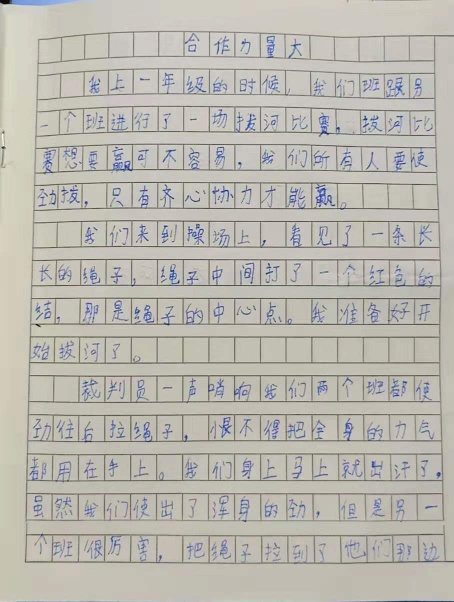 合作力量大
我上一年级的时候，我们班跟另
一个班进行了一场拔河比赛。拔河比
赛想要赢可不容易，我们所有人要使
劲拔，只有齐心协力才能赢。
我们来到操场上，看见了一条长
长的绳子，绳子中间打了一个红色的
结，那是绳子的中心点。我准备好开
始拔河了。
裁判员一声哨响我们两个班都使
劲往后拉绳子，恨不得把全身的力气
都用在手上。我们身上马上就出汗了，
虽然我们使出了浑身的劲，但是另一
个班很厉害，把绳子拉到了他们那边